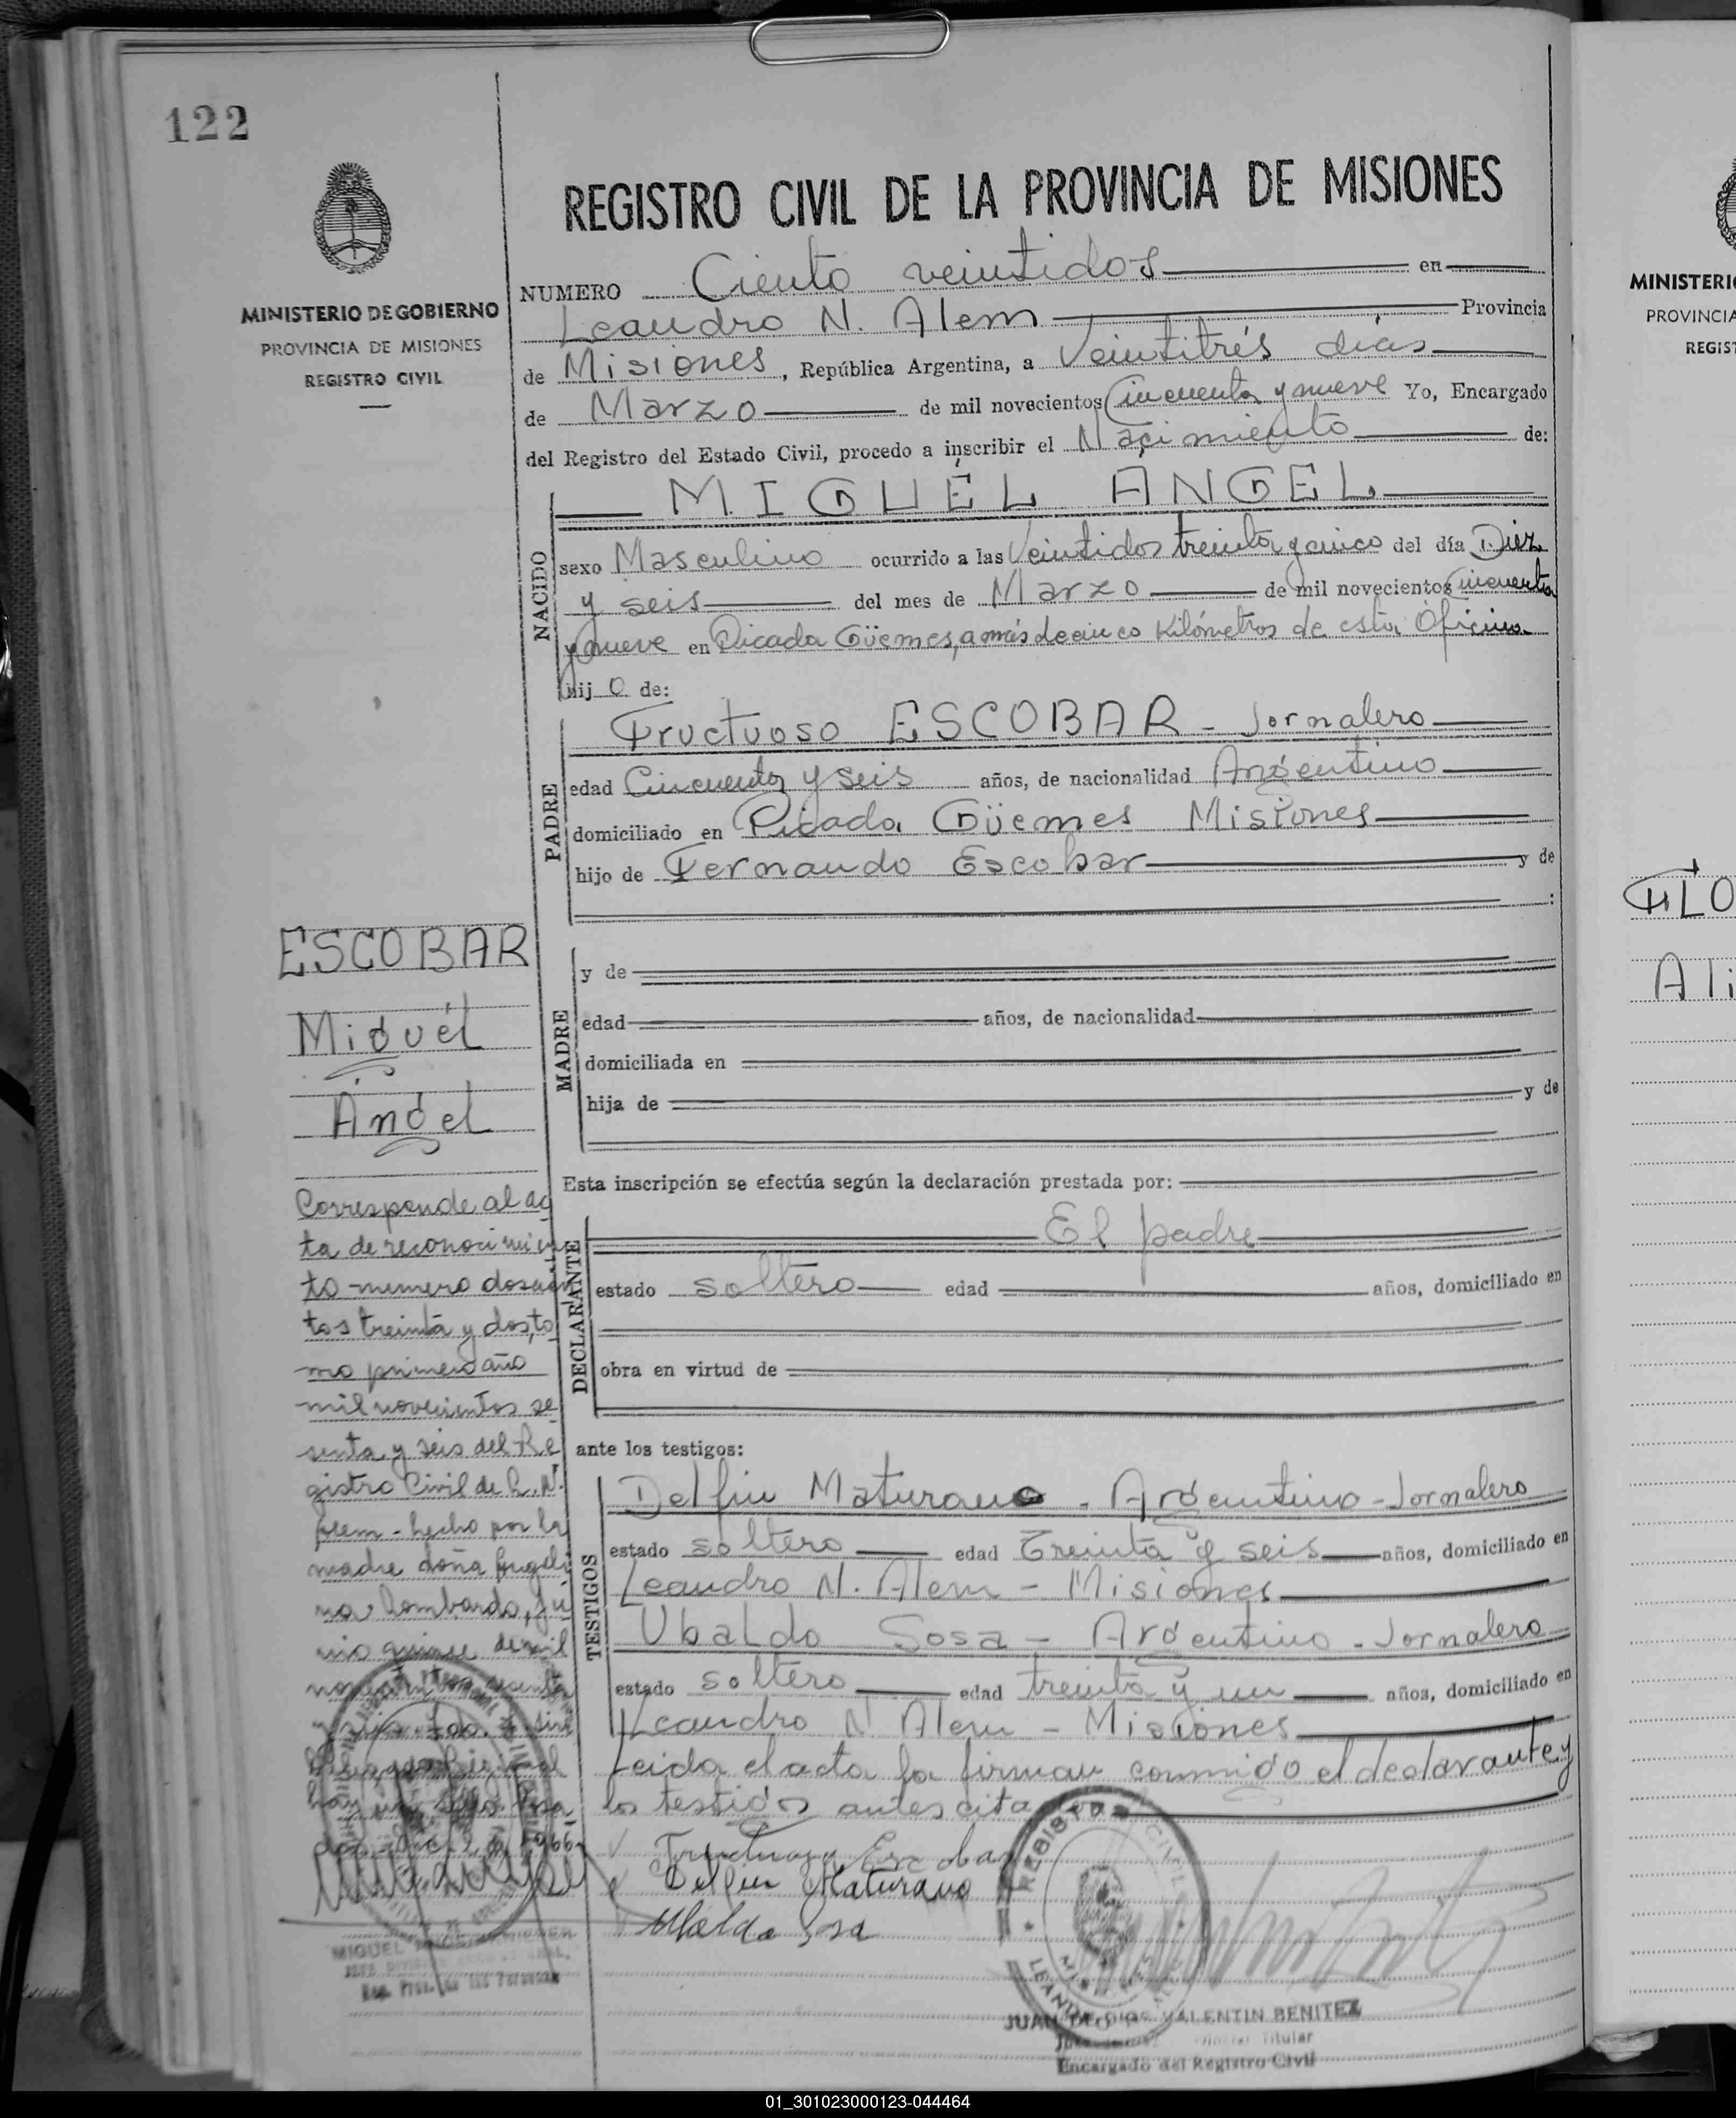 122
MINISTERIO DE GOBIERNO
PROVINCIA DE MISIONES
REGISTRO CIVIL
REGISTRO CIVIL DE LA PROVINCIA DE MISIONES
NUMERO Ciento veintidos en
Leandro N. Alem Provincia
de Misiones, República Argentina, a Veintitrés días
de Marzo de mil novecientos Cincuenta y nueve Yo, Encargado
del Registro del Estado Civil, procedo a inscribir el Nacimiento de:
MIGUÉL ÁNGEL
NACIDO
sexo Masculino ocurrido a las Veintidos treinta y cinco del día Diez
y seis del mes de Marzo de mil novecientos cincuenta
y nueve en Picada Güemes, a más de cinco Kilómetros de esta Oficina
hij o de:
PADRE
Fructuoso ESCOBAR - Jornalero
edad Cincuenta y seis años, de nacionalidad Argentino
domiciliado en Picada Güemes Misiones
hijo de Fernando Escobar y de
:
MADRE
y de
edad años, de nacionalidad
domiciliada en
hija de y de
Esta inscripción se efectúa según la declaración prestada por:
DECLARANTE
El padre
estado soltero edad años, domiciliado en
obra en virtud de
ante los testigos:
TESTIGOS
Delfin Maturano - Argentino - Jornalero
estado soltero edad Treinta y seis años, domiciliado en
Leandro N. Alem - Misiones
Ubaldo Sosa - Argentino - Jornalero
estado soltero edad treinta y un años, domiciliado en
Leandro N. Alem - Misiones
Leida el acta la firman conmigo el declarante y
los testigos antes citados
Fructuoso Escobar
Delfin Maturano
Ubaldo Sosa
JUAN DE DIOS VALENTIN BENITEZ
Titular
Encargado del Registro Civil
ESCOBAR
Miguél
Ángel
Corresponde al ac
ta de reconocimien
to numero doscien
tos treinta y dos, to
mo primero año
mil novecientos se
senta y seis del Re
gistro Civil de L. N.
Alem - hecho por la
madre doña
Lombardo, ju
nio quince de mil
MIGUEL
Reg. Prov. de las Personas
MINISTERI
PROVINCIA
REGIST
FLO
Ali
01_301023000123-044464